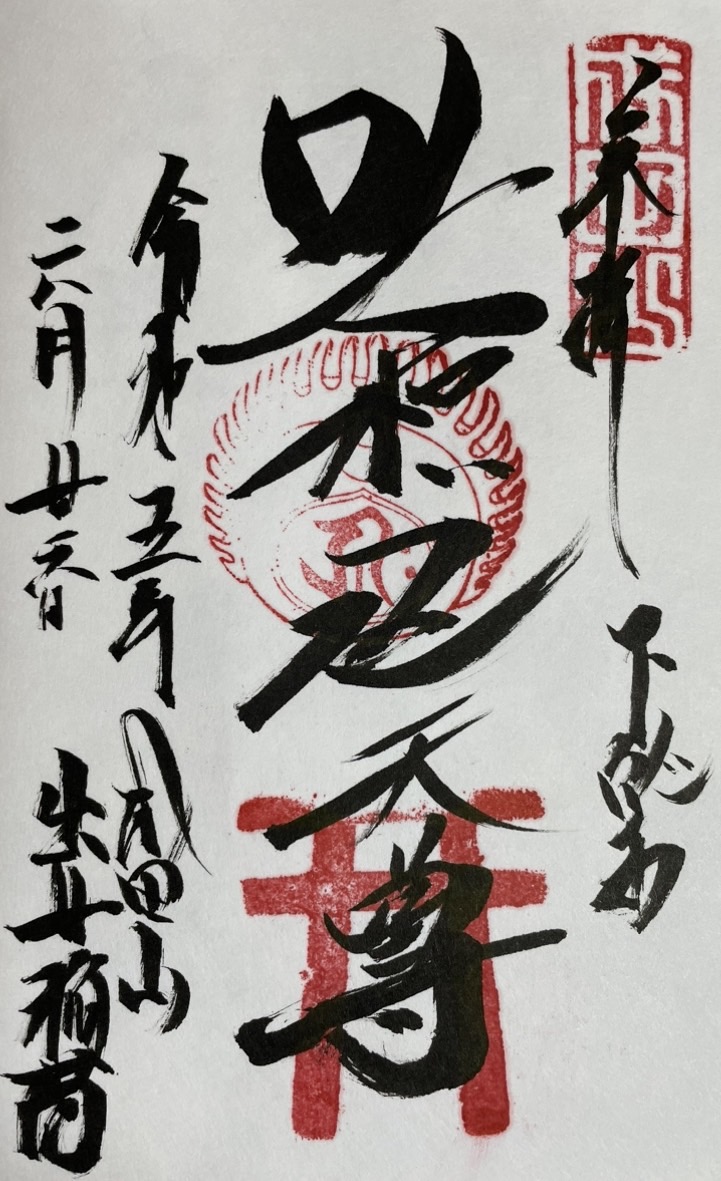 奉拝 下総国
吒枳尼天尊
令和五年 成田山
六月廿 出世稲荷
成田山